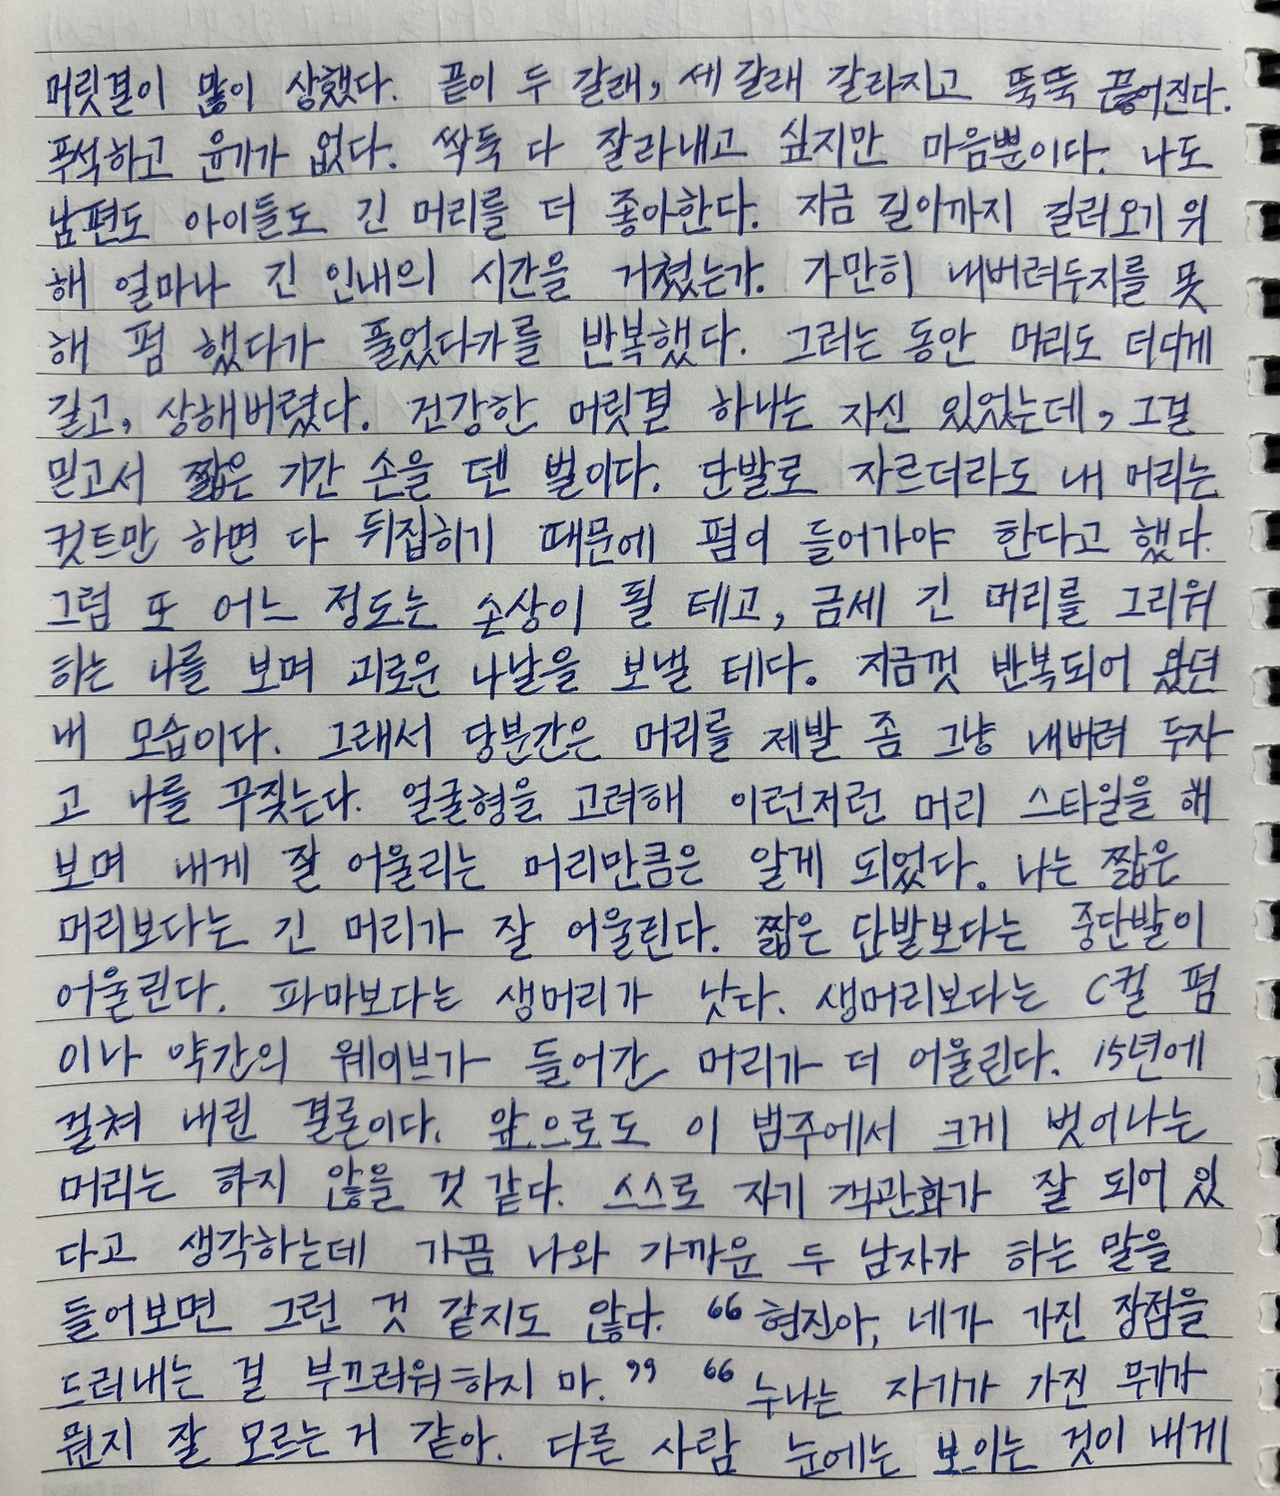 머릿결이 많이 상했다. 끝이 두 갈래, 세 갈래 갈라지고 뚝뚝 끊어진다.
푸석하고 윤기가 없다. 싹둑 다 잘라내고 싶지만 마음뿐이다. 나도
남편도 아이들도 긴 머리를 더 좋아한다. 지금 길이까지 길러오기 위
해 얼마나 긴 인내의 시간을 거쳤는가. 가만히 내버려두지를 못
해 펌 했다가 풀었다가를 반복했다. 그러는 동안 머리도 더디게
길고, 상해버렸다. 건강한 머릿결 하나는 자신 있었는데, 그걸
믿고서 짧은 기간 손을 댄 벌이다. 단발로 자르더라도 내 머리는
컷트만 하면 다 뒤집히기 때문에 펌이 들어가야 한다고 했다.
그럼 또 어느 정도는 손상이 될 테고, 금세 긴 머리를 그리워
하는 나를 보며 괴로운 나날을 보낼 테다. 지금껏 반복되어 왔던
내 모습이다. 그래서 당분간은 머리를 제발 좀 그냥 내버려 두자
고 나를 꾸짖는다. 얼굴형을 고려해 이런저런 머리 스타일을 해
보며 내게 잘 어울리는 머리만큼은 알게 되었다. 나는 짧은
머리보다는 긴 머리가 잘 어울린다. 짧은 단발보다는 중단발이
어울린다. 파마보다는 생머리가 낫다. 생머리보다는 C컬 펌
이나 약간의 웨이브가 들어간 머리가 더 어울린다. 15년에
걸쳐 내린 결론이다. 앞으로도 이 범주에서 크게 벗어나는
머리는 하지 않을 것 같다. 스스로 자기 객관화가 잘 되어 있
다고 생각하는데 가끔 나와 가까운 두 남자가 하는 말을
들어보면 그런 것 같지도 않다. “현진아, 네가 가진 장점을
드러내는 걸 부끄러워하지 마.” “누나는 자기가 가진 무기가
뭔지 잘 모르는 거 같아. 다른 사람 눈에는 보이는 것이 내게